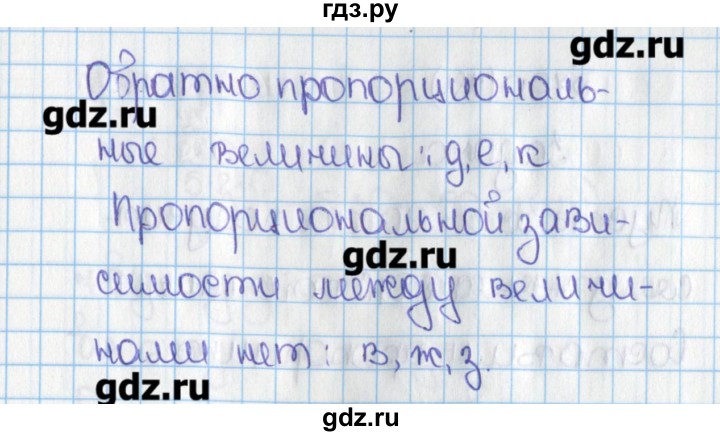 гдз.ру
gdz.ru
Обратно пропорциональ-
gdz.ru
ные величины: д, е, к
Пропорциональной зави-
gdz.ru
симости между величи-
нами нет: в, ж, з.
gdz.ru
gdz.ru